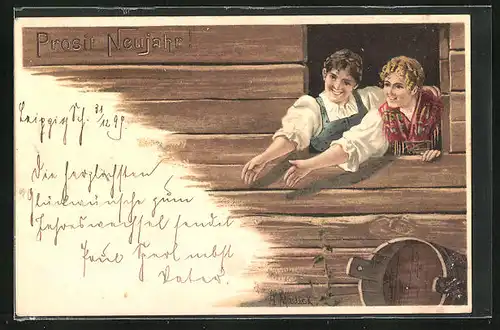 Prosit Neujahr!
Leipzig Sch. 31/12 99.
Die herzlichsten
Glückwünsche zum
Jahreswechsel sendet
Paul Perl nebst
Vater.